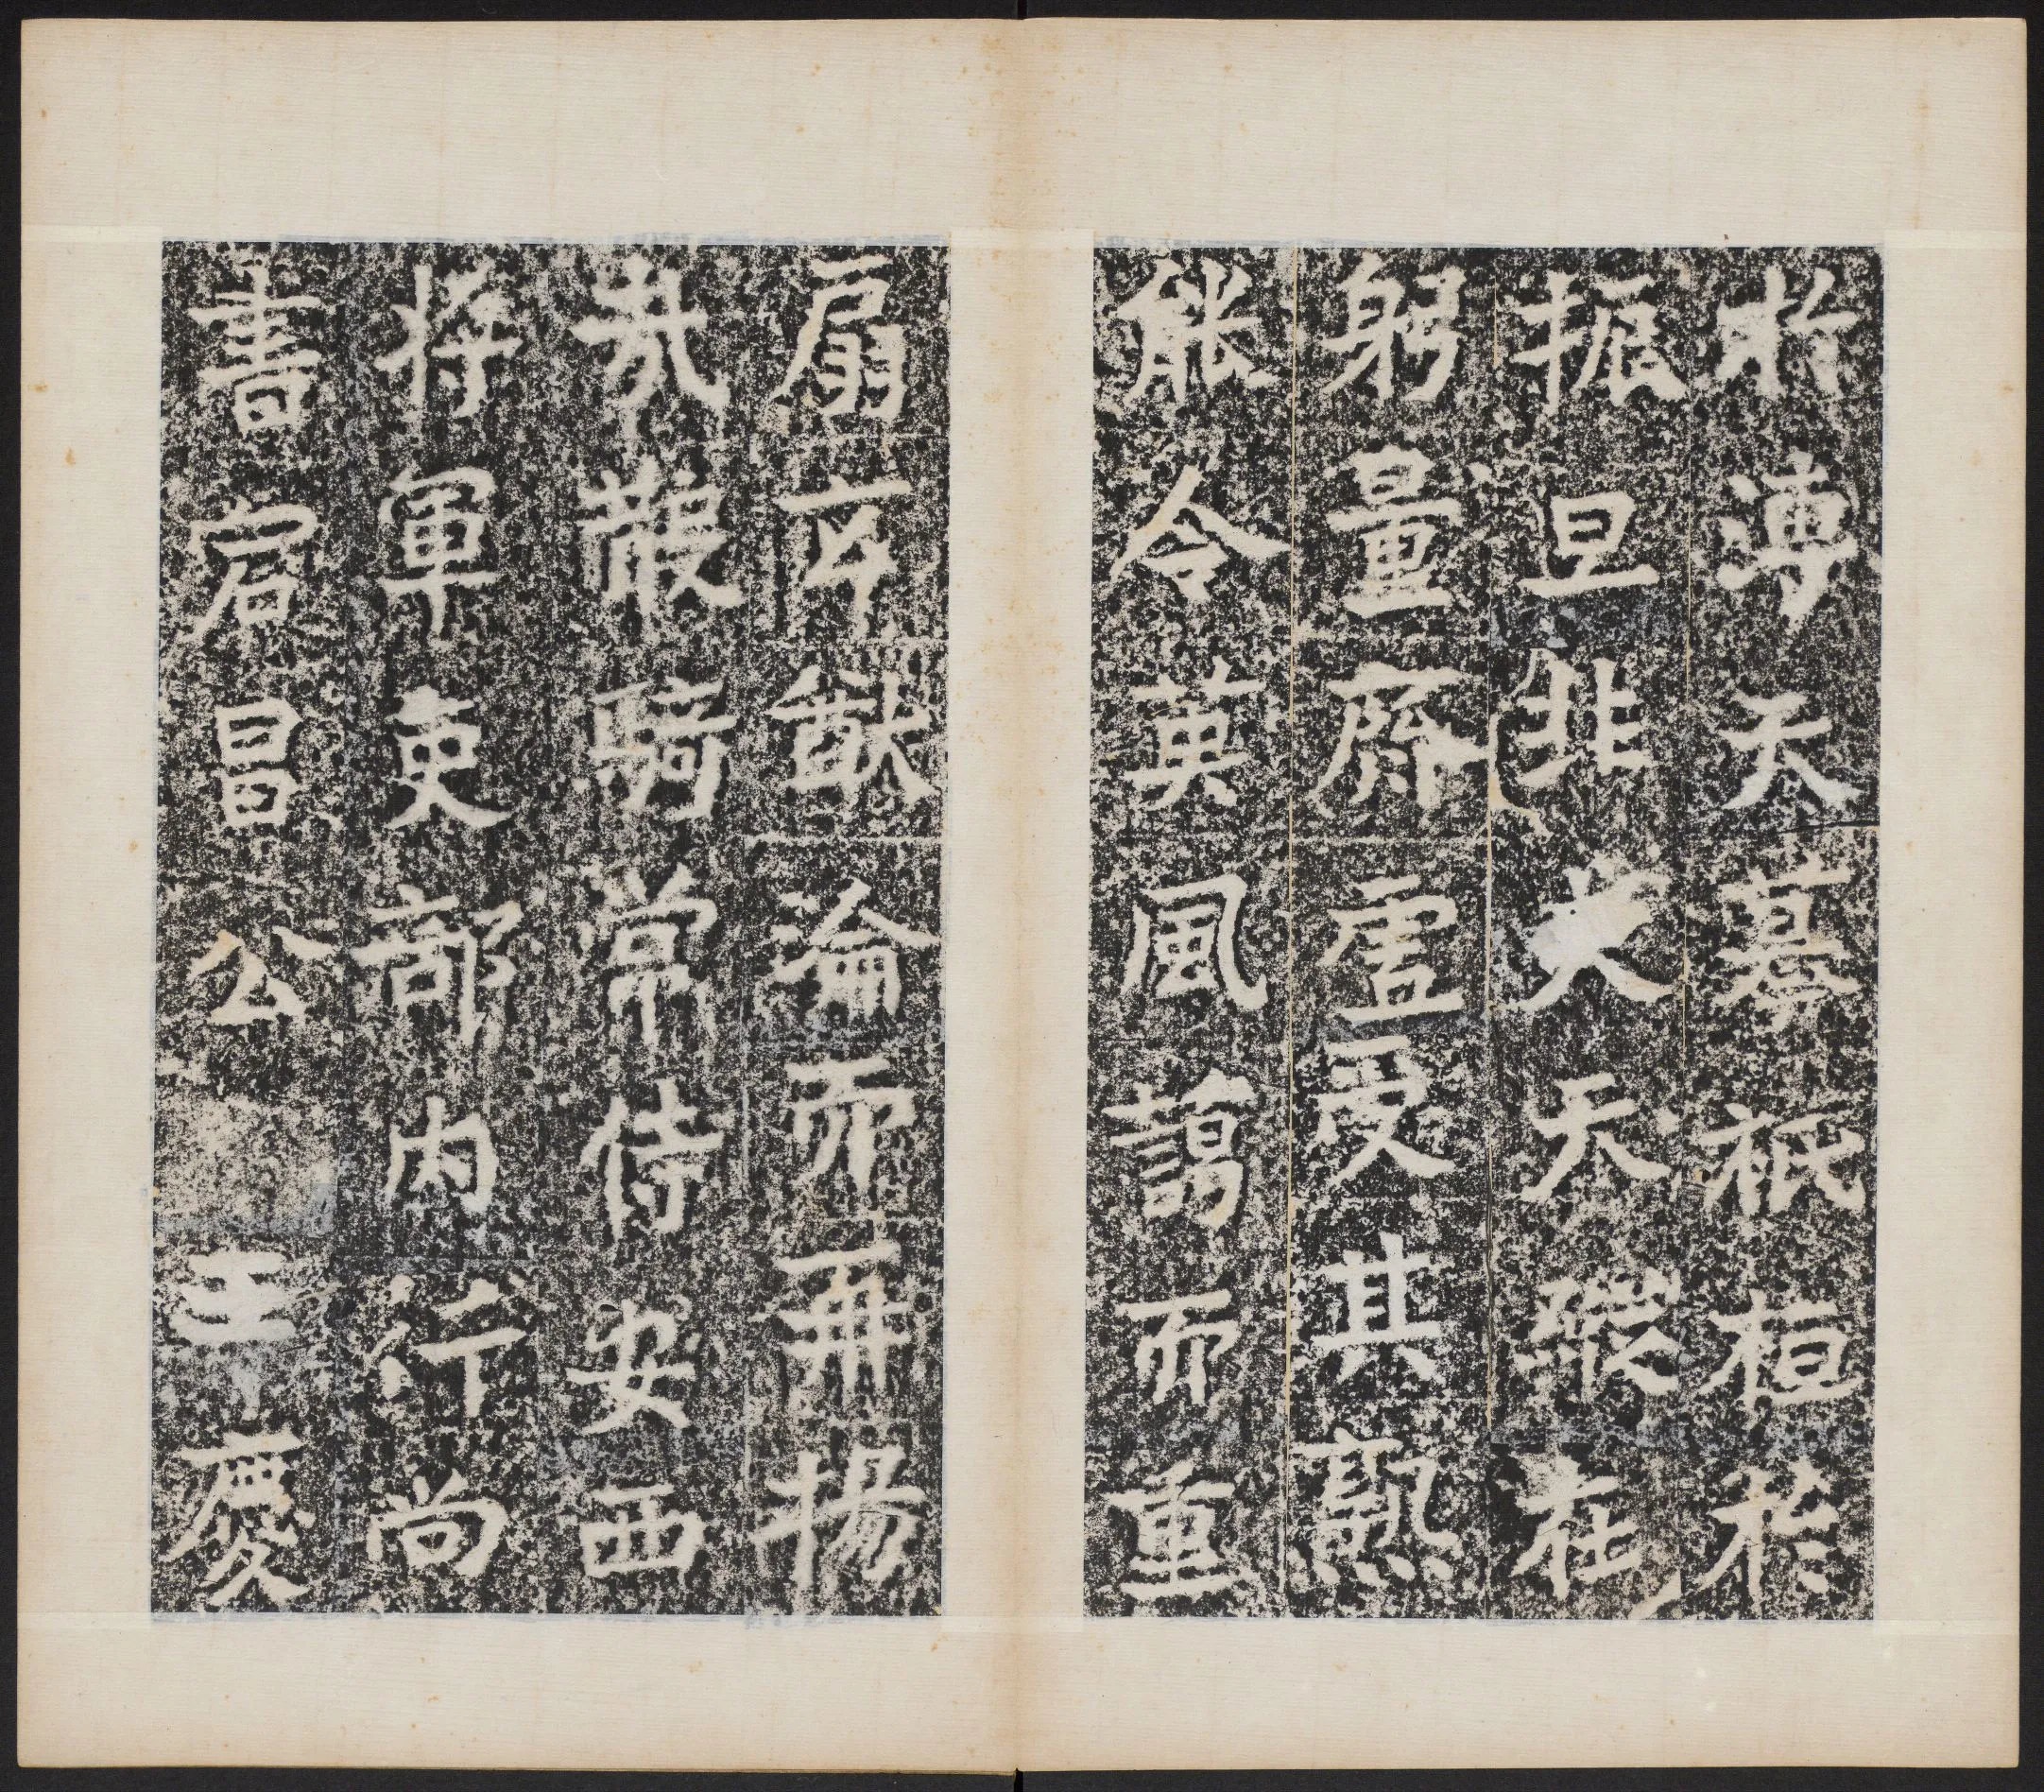 於溥天摹祇桓於
振旦非夫天縱在
躬量齊虛受其熟
能令英風藹而重
扇玄猷淪而再揚
哉散騎常侍安西
將軍吏部內行尚
書宕昌公王慶